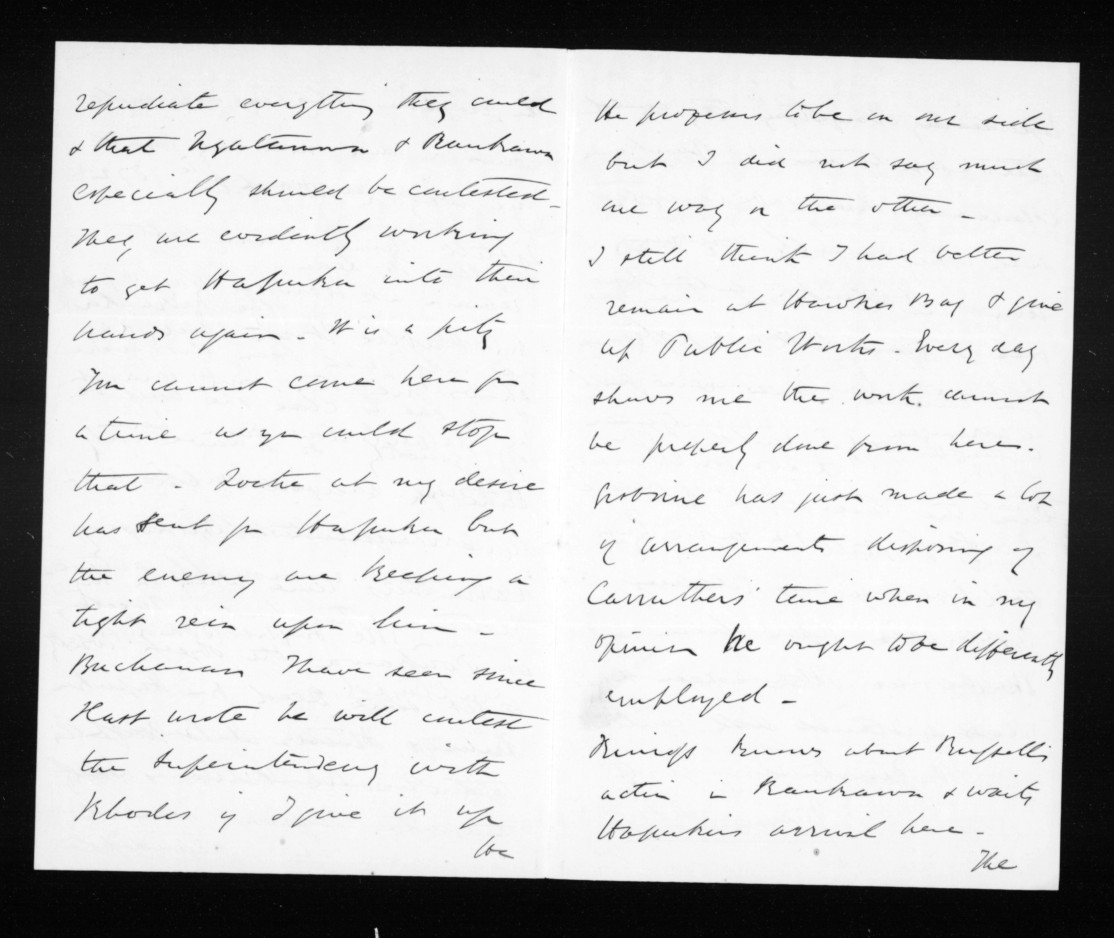 repudiate everything they could
& that Ngatarawa & Raukawa
especially should be contested -
They are evidently working
to get Hapuku into their
hands again - It is a pity
You cannot come here for
a time as you could stop
that - Locke at my desire
has sent for Hapuku but
the enemy are keeping a
tight rein upon him -
Buchanan I have seen since
last wrote he will contest
the Superintendency with
Rhodes if I give it up
He
He professes to be on our side
but I did not say much
one way or the other -
I still think I had better
remain at Hawkes Bay & give
up Public Works - Every day
shows me the work cannot
be properly done from here -
Gisborne has just made a lot
of arrangements disposing of
Carruthers' time when in my
opinion he ought to be differently
employed -
knows about Russell's
action in Raukawa & waits
Hapuku's arrival here -
The